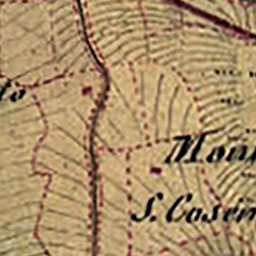 to
Mon
S. Cosim